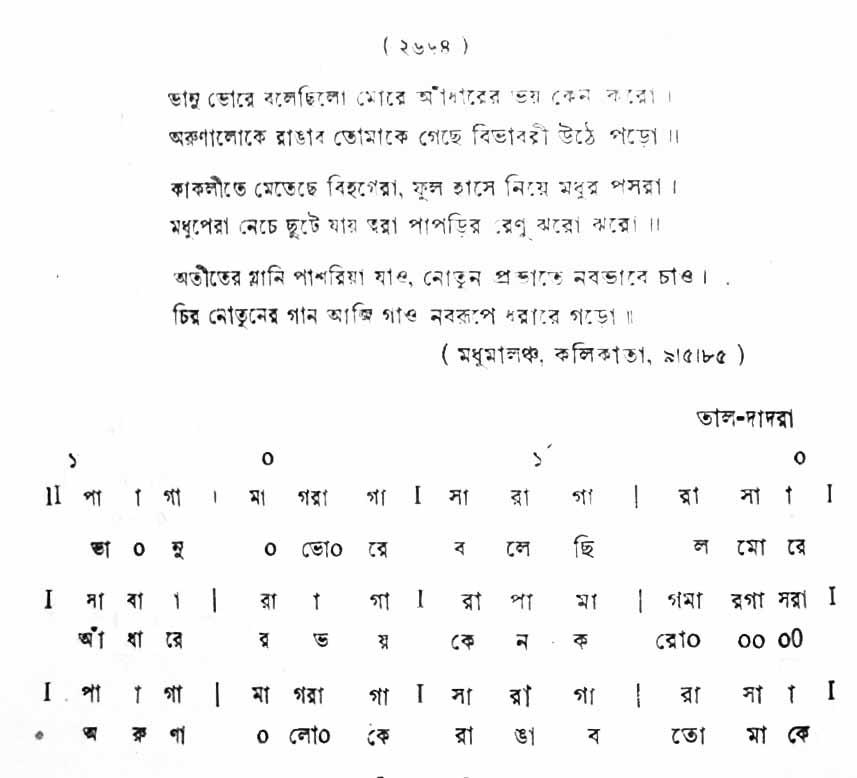 ( ২৬৮৪ )
ভানু ভোরে বলেছিলো মোরে আঁধারের ভয় কেন করো ।
অরুণালোকে রাঙাব তোমাকে গেছে বিভাবরী উঠে পড়ো ॥
কাকলীতে মেতেছে বিহগেরা, ফুল হাসে নিয়ে মধুর পসরা ।
মধুপেরা নেচে ছুটে যায় ত্বরা পাপড়ির রেণু ঝরো ঝরো ॥
অতীতের গ্লানি পাশরিয়া যাও, নোতুন প্রভাতে নবভাবে চাও ।
চির নোতুনের গান আজি গাও নবরূপে ধরারে গড়ো ॥
( মধুমালঞ্চ, কলিকাতা, ৯।৫।৮৫ )
তাল-দাদরা
১ ০ ১´ ০
II পা া গা । মা গরা গা I সা রা গা | রা সা া I
ভা ০ নু ০ ভো০ রে ব লে ছি ল মো রে
I সা বা া | রা া গা I রা পা মা | গমা রগা সরা I
আঁ ধা রে র ভ য় কে ন ক রো০ ০০ ০০
I পা া গা | মা গরা গা I সা রা গা | রা সা া I
অ রু ণা ০ লো০ কে রা ঙা ব তো মা কে